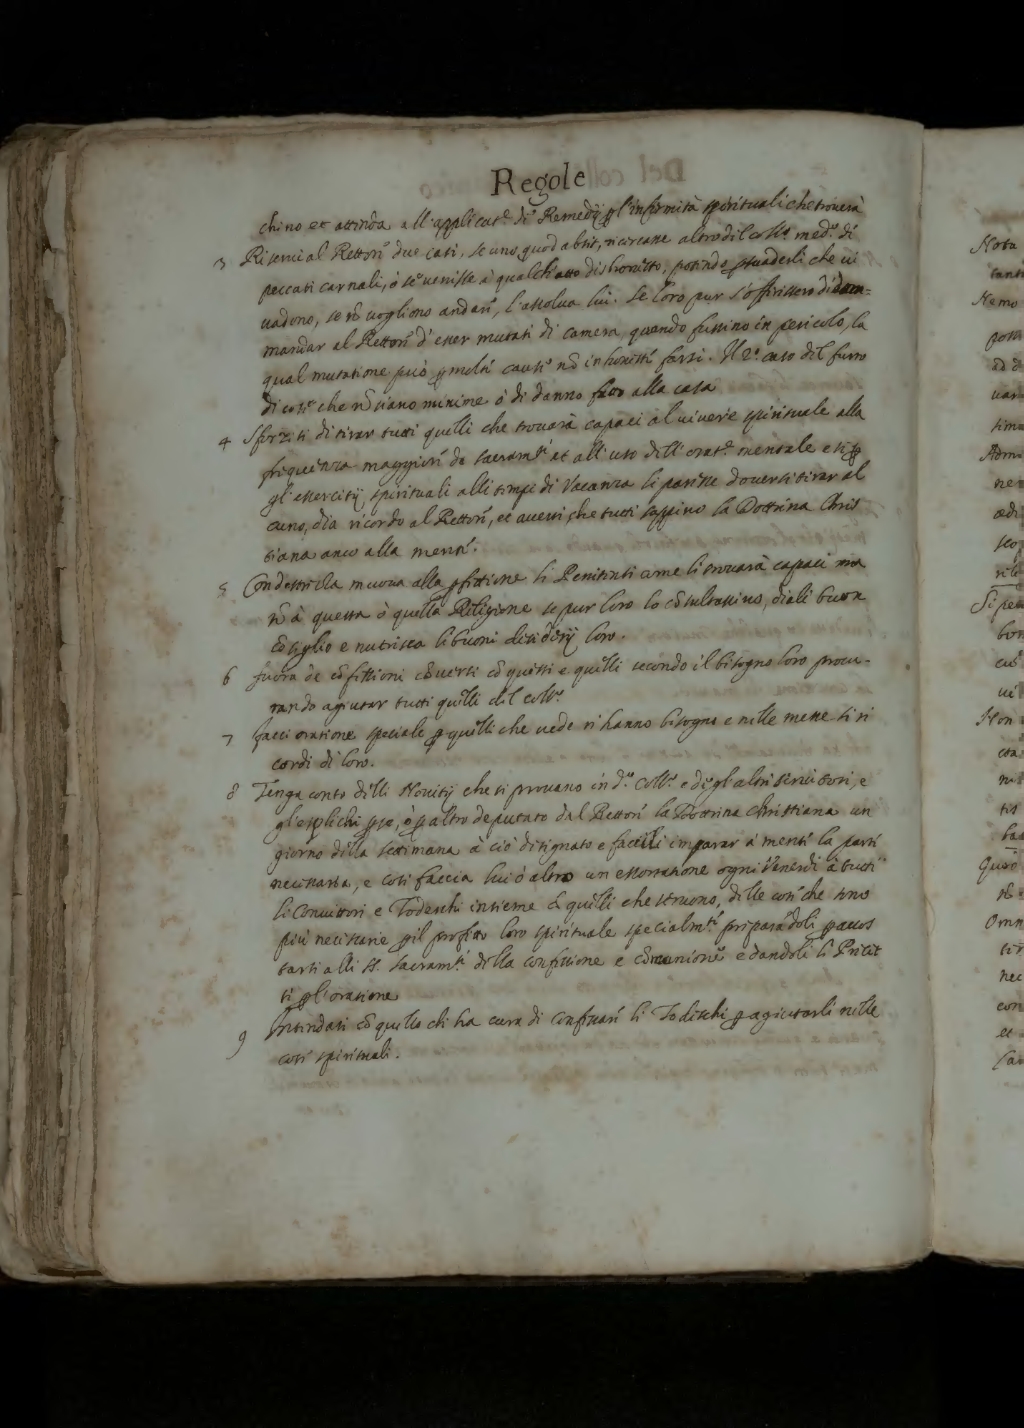 Regole
chino et attenda all'applicat.e di Remedij p l'infirmità spirituali che trouerà
3 Riserui al Rettorẽ due casi, se uno, quod absit, ricircasse altro dil coll.o med.o di
peccati carnali, ò se uenisse à qualch'atto dishonesto, potendo psuaderli che ui
uadono, se nõ uogliono andarẽ, l'assolua lui. Se loro pur s'offerissero di dom=
mandar al Rettorẽ d'esser mutati di camera quando fussino in pericolo, la
qual mutatione può p molte cause nõ inhoneste farsi. Il 2.o caso dil furto
di cose che nõ siano minime ò di danno fatto alla casa
4 Sforzisi di tirar tutti quelli che trouarà capaci al uiuere spirituale alla
frequenza maggiorẽ de sacram.ti et all'uso dell'orat.e mentale e si p
gl'essercitij spirituali alli tempi di Vacanza li paresse douersi tirar al
cuno, dia ricordo al Rettorẽ, et auerti, che tutti sappino la Dottrina Chris
tiana anco alla mente.
5 Con destrezza muoua alla pfettione li Penitenti come li trouarà capaci ma
nõ à questa ò quella Religione se pur loro lo cõsultassino, diali buon
cõsiglio e nutrisca li buoni desiderij loro.
6 fuora de cõfessioni cõuersi cõ questi e quelli secondo il bisogno loro procu-
rando agiutar tutti quelli dil coll.o
7 facci oratione speciale p quelli che uede n'hanno bisogno e nelle messe si ri
cordi di loro.
8 Tenga conto dilli Nouitij che si prouano in d.o Coll.o e degl'altri seruitori, e
gl'esplichi p se, ò p altro deputato dal Rettorẽ la Dottrina Christiana un
giorno della settimana à ciò designato e faccili imparar à mente la parte
necessaria, e così faccia lui ò altro un essortatione ogni Venerdi à tutti
li Conuittori e Todeschi insieme cõ quelli che seruono, delle cose che sono
più necessarie p il profitto loro spirituale specialm.te preparãdoli p accos
tarsi alli SS. sacram.ti della confessione e cõmunione e dandoli li Precet
ti p l'oratione
9 Intendasi cõ quello chi ha cura di confessarẽ li Todeschi p agiutarli nelle
cose spirituali.
Nota
Nemo
Admo
Si pe
Non
Omn
nec
con
et